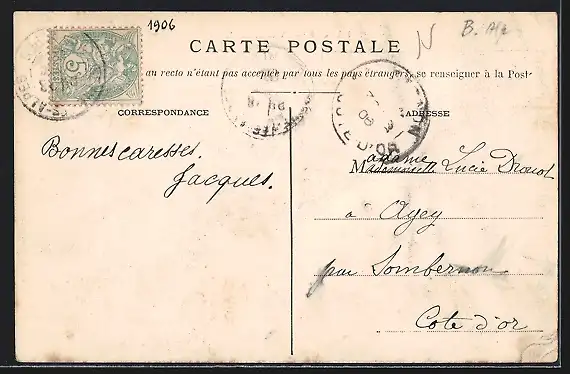 1906
CARTE POSTALE
N
B. Alp
au recto n'étant pas acceptée par tous les pays étrangers, se renseigner à la Poste
CORRESPONDANCE
ADRESSE
CÔTE D'OR
5
Bonnes caresses.
Jacques.
Madame Lucie Drouot
à Agey
par Sombernon
Cote d'or